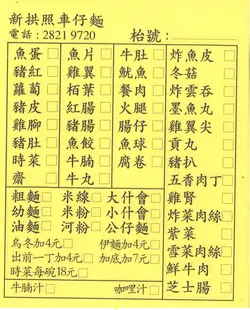 新拱照車仔麵
電話：2821 9720 枱號：
魚蛋□ 魚片□ 牛肚□ 炸魚皮□
豬紅□ 雞翼□ 魷魚□ 冬菇□
蘿蔔□ 栢葉□ 餐肉□ 炸雲吞□
豬皮□ 紅腸□ 火腿□ 墨魚丸□
雞腳□ 豬腸□ 腸仔□ 雞翼尖□
豬肚□ 魚餃□ 魚球□ 貢丸□
時菜□ 牛腩□ 腐卷□ 豬扒□
齋□ 牛丸□ 五香肉丁□
粗麵□ 米線□ 大什會□ 雞腎□
幼麵□ 米粉□ 小什會□ 炸菜肉絲□
油麵□ 河粉□ 公仔麵□ 紫菜□
烏冬加4元□ 伊麵加4元□ 雪菜肉絲□
出前一丁加4元□ 加底加7元□ 鮮牛肉□
時菜每碗18元□ 芝士腸□
牛腩汁□ 咖哩汁□